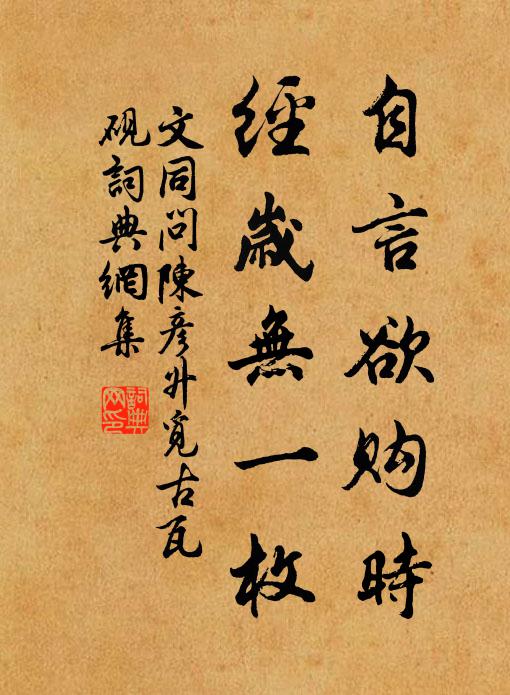 自言欲购時
經歲無一枚
文同問陳彦升覓古瓦
硯詞典網集
詞典
网印